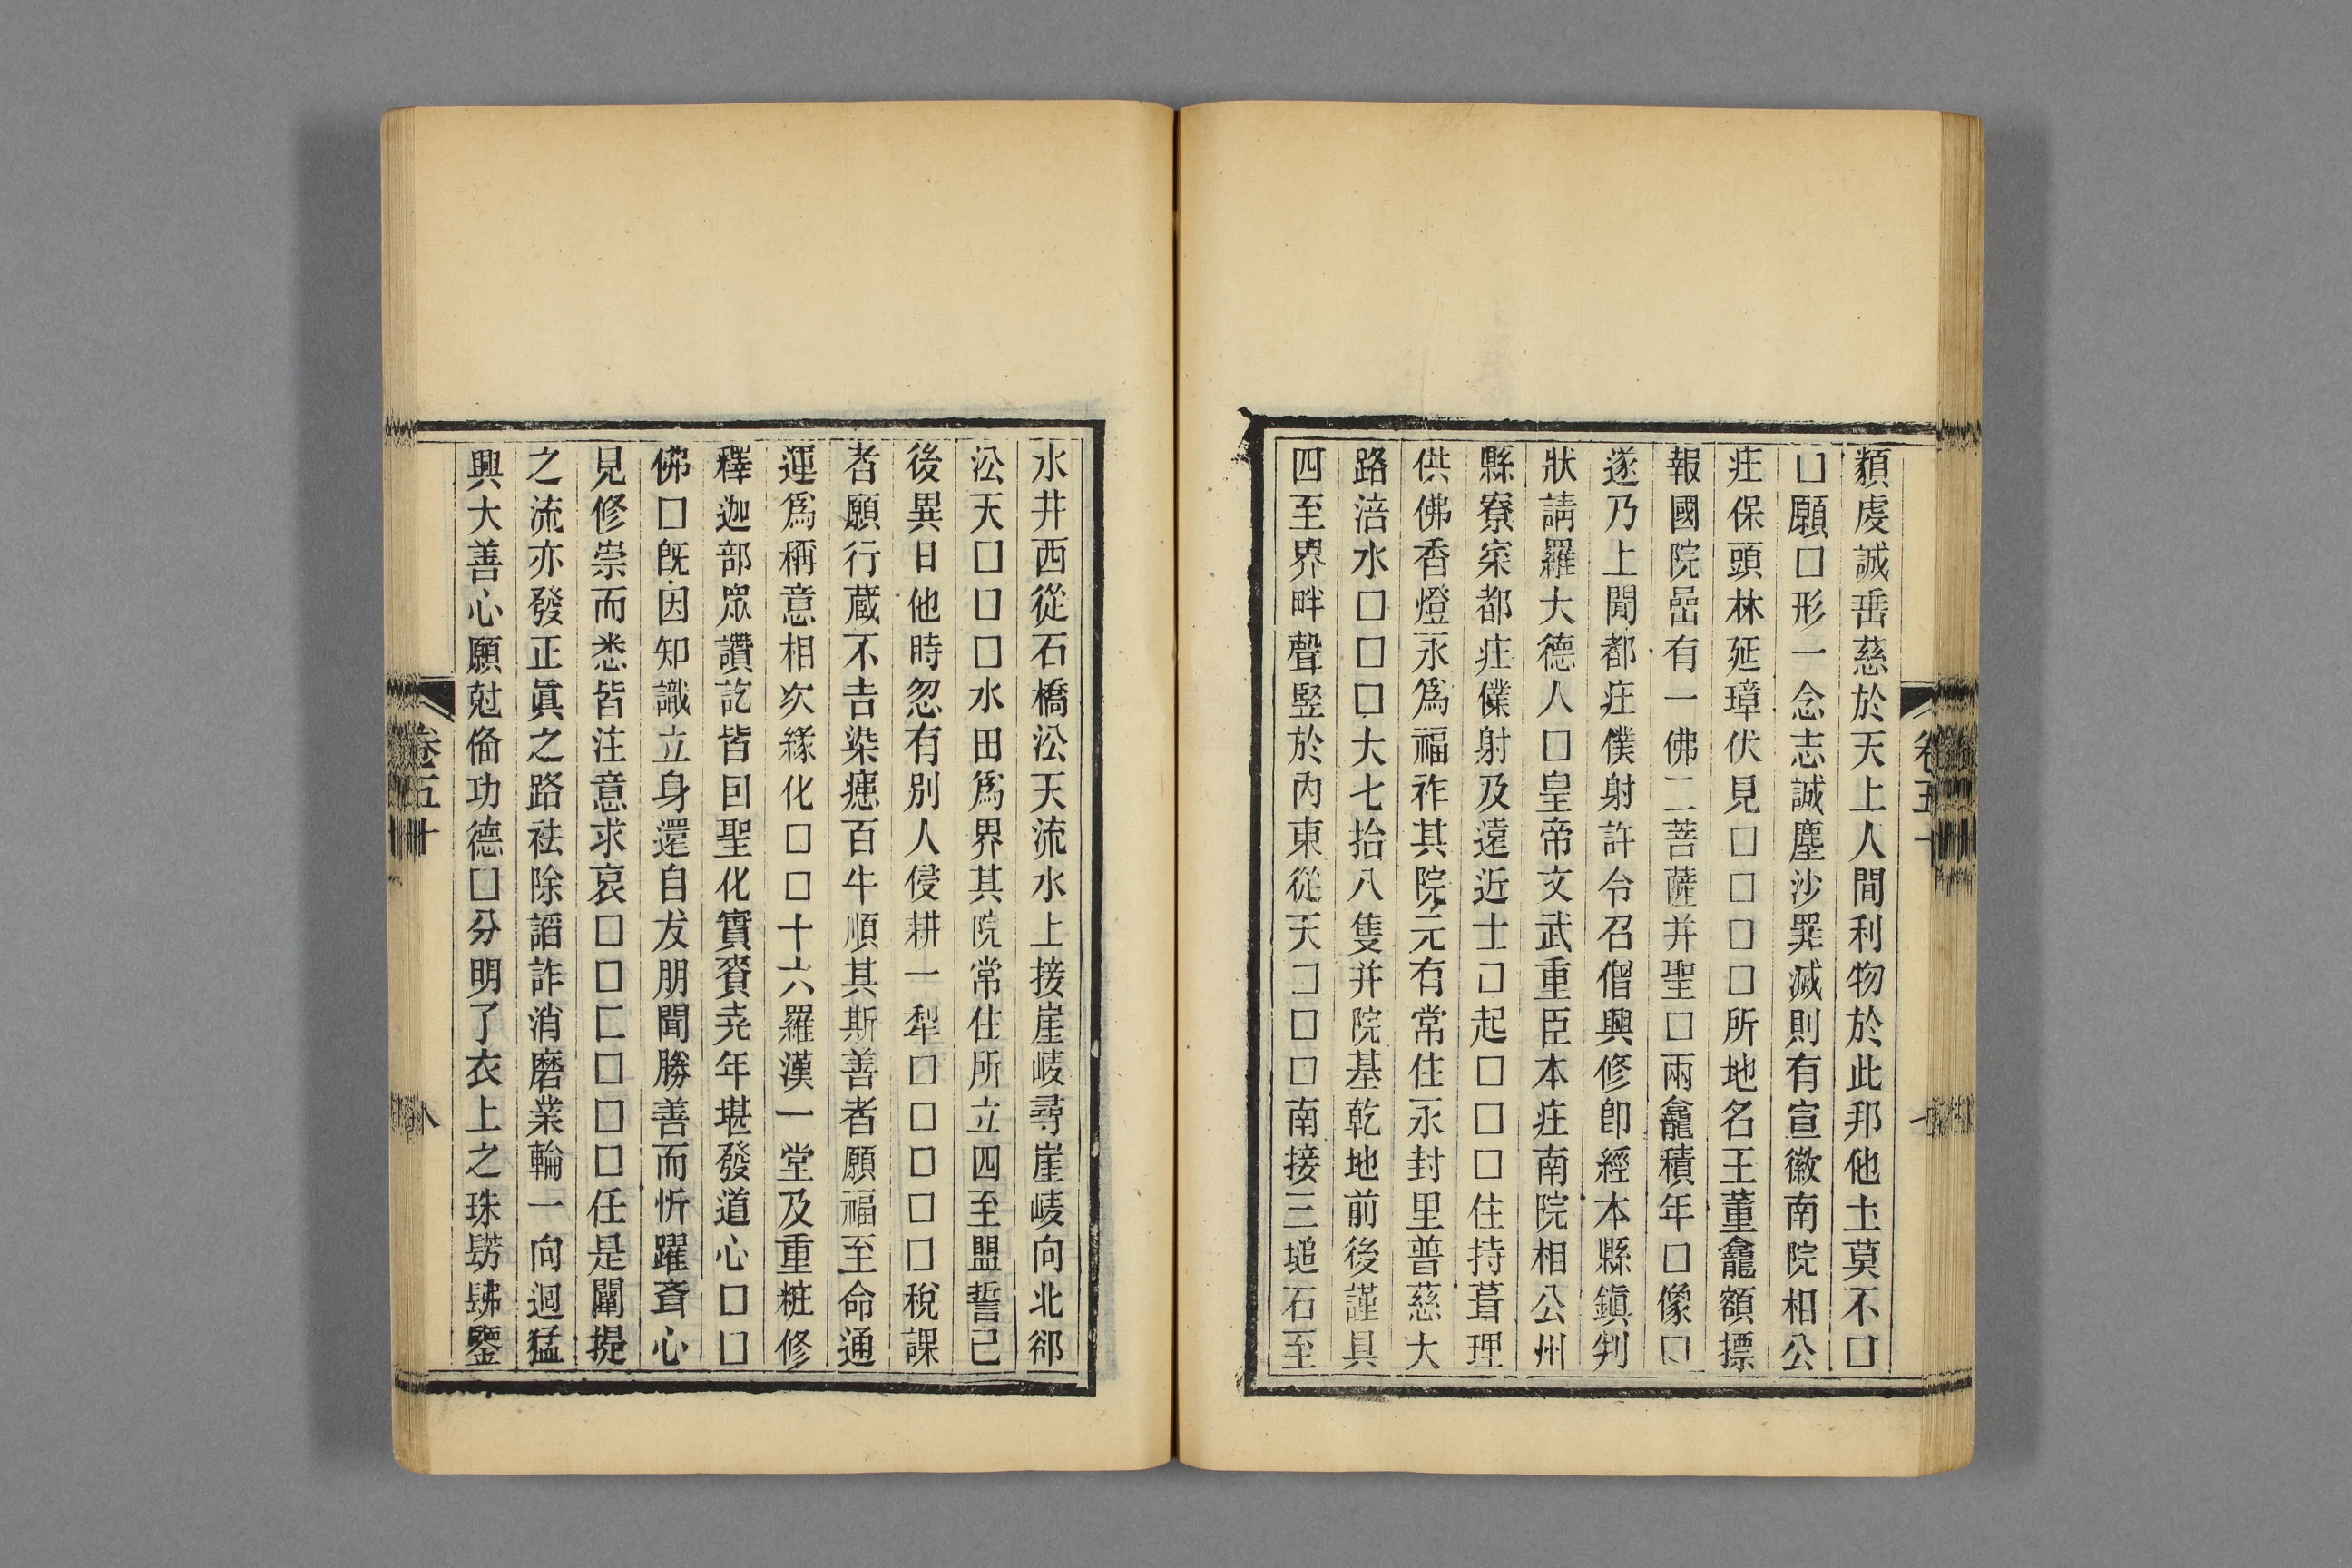 纇虔誠垂慈於天上人間利物於此邦他𡈽莫不□
□願□形一念志誠塵沙罪滅則有宣徽南院相公
庄保頭林延璋伏見□□□□所地名王董龕額摽
報國院嵒有一佛二菩薩并聖□兩龕積年□像□
遂乃上聞都庄僕射許令召僧興修卽經本縣鎭判
狀請羅大德人□皇帝文武重臣本庄南院相公州
縣寮寀都庄僕射及遠近士□起□□□住持葺理
供佛香燈永爲福祚其院元有常住永封里普慈大
路涪水□□□大七拾八隻并院基乾地前後謹具
四至界畔聲竪於內東從天□□□南接三塠石至
水井西從石橋㳂天流水上接崖崚尋崖崚向北祁
㳂天□□□水田爲界其院常住所立四至盟誓已
後異日他時忽有別人侵耕一犁□□□□□稅課
者願行蔵不吉染瘧百牛順其斯善者願福至命通
運爲稱意相次緣化□□十六羅漢一堂及重粧修
釋迦部眾讚訖皆回聖化實賚尭年堪發道心□□
佛□旣因知識立身還自犮朋聞勝善而忻躍齊心
見修崇而悉皆注意求哀□□□□□□任是闡提
之流亦發正眞之路祛除謟詐消磨業輪一向迴猛
興大善心願尅俻功德□分明了衣上之珠昮昲鑒
卷五十
八
卷五十